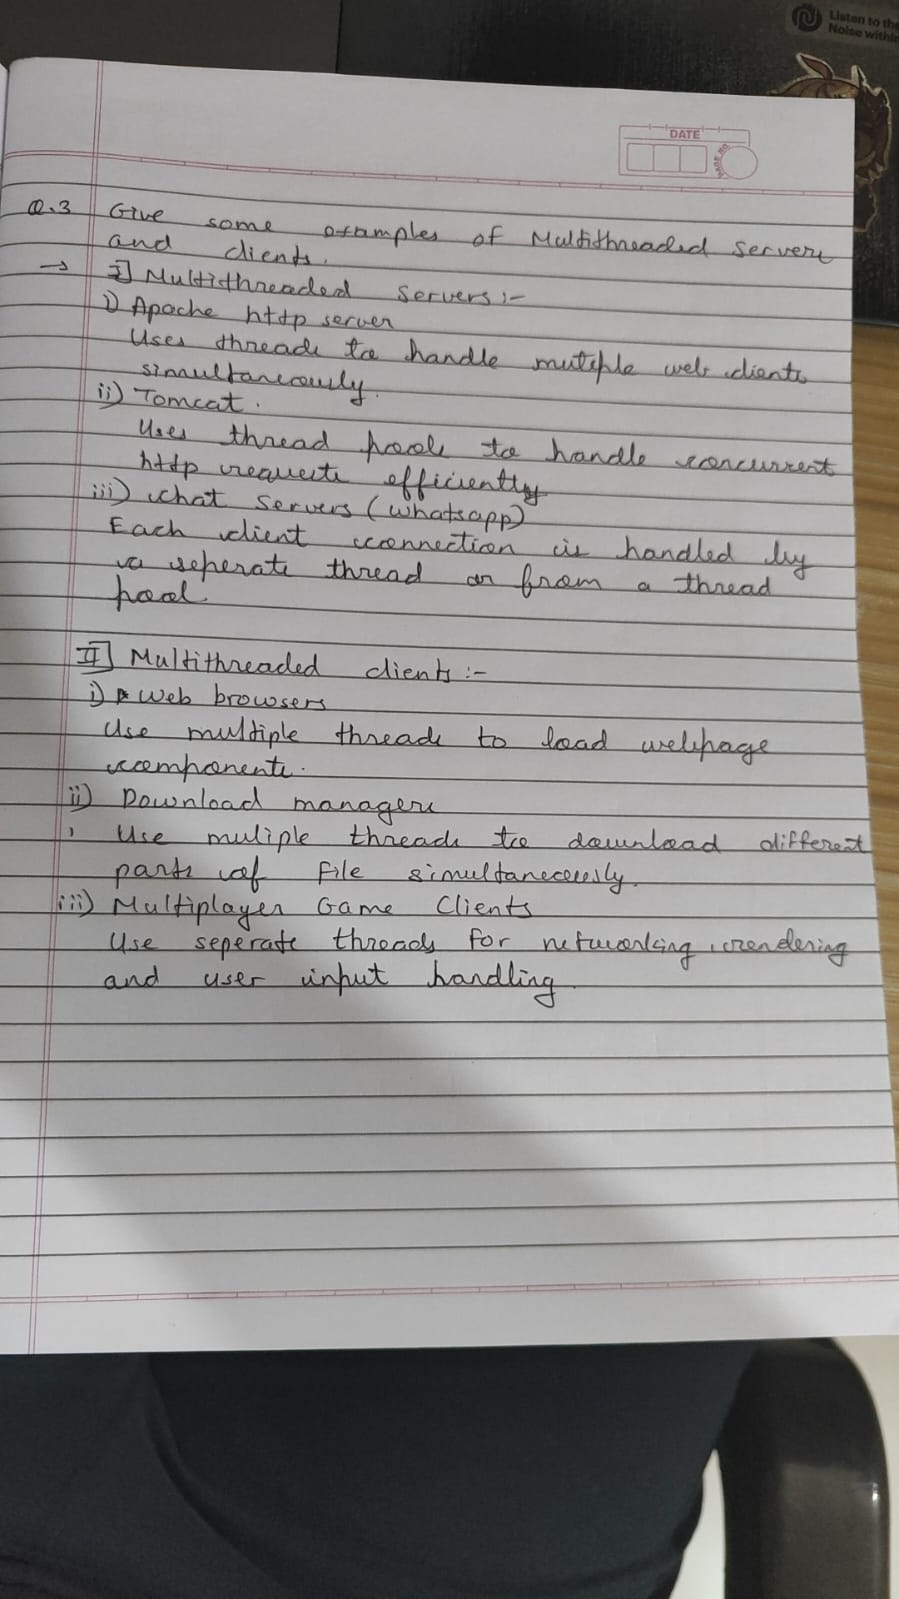 Listen to the
Noise within
DATE
PAGE NO.
Q.3 Give some examples of Multithreaded servers
and clients.
→ I] Multithreaded servers :-
i) Apache http server
Uses threads to handle mutiple web clients
simultaneously.
ii) Tomcat.
Uses thread pools to handle concurrent
http requests efficiently
iii) chat servers (whatsapp)
Each client connection is handled by
a seperate thread or from a thread
pool.
II] Multithreaded clients :-
i) web browsers
Use multiple threads to load webpage
components.
ii) Download managers
Use muliple threads to download different
parts of File simultaneously.
iii) Multiplayer Game Clients
Use seperate threads for networking, rendering
and user input handling.